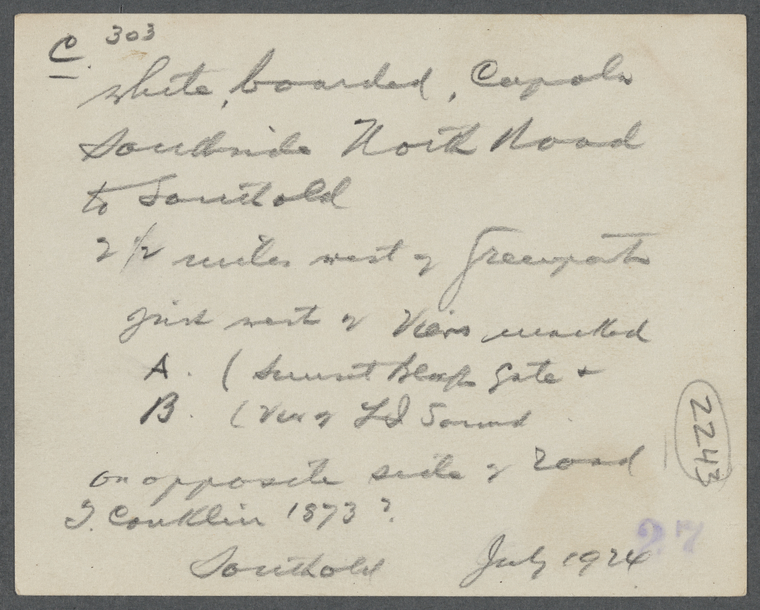 C. 303
White, boarded, Cupola
Southside North Road
to Southold
2 1/2 miles west of Greenport
just west of Views marked
A. (Sunset Bluff Gate +
B. (View of L I Sound
on opposite side of road
2243
T. Conklin 1873?
27
Southold July 1924